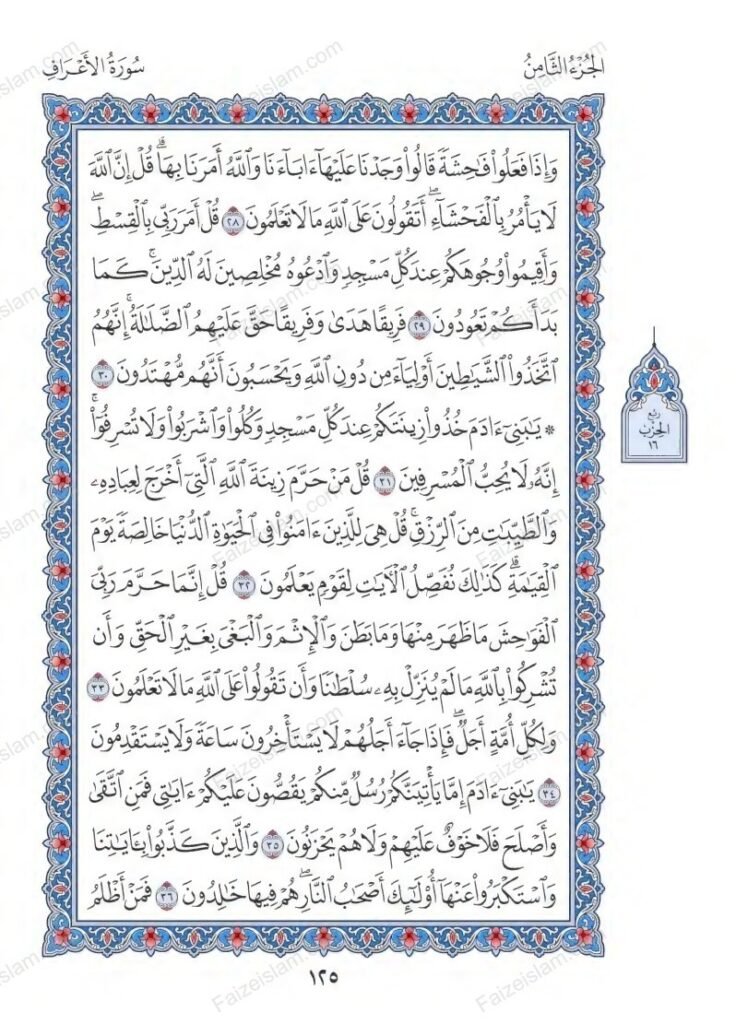 الجُزْءُ الثَّامِنُ
سُورَةُ الأَعْرَافِ
وَإِذَا فَعَلُوا۟ فَٰحِشَةً قَالُوا۟ وَجَدْنَا عَلَيْهَآ ءَابَآءَنَا وَٱللَّهُ أَمَرَنَا بِهَا ۗ قُلْ إِنَّ ٱللَّهَ
لَا يَأْمُرُ بِٱلْفَحْشَآءِ ۖ أَتَقُولُونَ عَلَى ٱللَّهِ مَا لَا تَعْلَمُونَ ٢٨ قُلْ أَمَرَ رَبِّى بِٱلْقِسْطِ ۖ
وَأَقِيمُوا۟ وُجُوهَكُمْ عِندَ كُلِّ مَسْجِدٍ وَٱدْعُوهُ مُخْلِصِينَ لَهُ ٱلدِّينَ ۚ كَمَا
بَدَأَكُمْ تَعُودُونَ ٢٩ فَرِيقًا هَدَىٰ وَفَرِيقًا حَقَّ عَلَيْهِمُ ٱلضَّلَٰلَةُ ۚ إِنَّهُمُ
ٱتَّخَذُوا۟ ٱلشَّيَٰطِينَ أَوْلِيَآءَ مِن دُونِ ٱللَّهِ وَيَحْسَبُونَ أَنَّهُم مُّهْتَدُونَ ٣٠
۞ يَٰبَنِىٓ ءَادَمَ خُذُوا۟ زِينَتَكُمْ عِندَ كُلِّ مَسْجِدٍ وَكُلُوا۟ وَٱشْرَبُوا۟ وَلَا تُسْرِفُوٓا۟ ۚ
إِنَّهُۥ لَا يُحِبُّ ٱلْمُسْرِفِينَ ٣١ قُلْ مَنْ حَرَّمَ زِينَةَ ٱللَّهِ ٱلَّتِىٓ أَخْرَجَ لِعِبَادِهِۦ
وَٱلطَّيِّبَٰتِ مِنَ ٱلرِّزْقِ ۚ قُلْ هِىَ لِلَّذِينَ ءَامَنُوا۟ فِى ٱلْحَيَوٰةِ ٱلدُّنْيَا خَالِصَةً يَوْمَ
ٱلْقِيَٰمَةِ ۗ كَذَٰلِكَ نُفَصِّلُ ٱلْءَايَٰتِ لِقَوْمٍ يَعْلَمُونَ ٣٢ قُلْ إِنَّمَا حَرَّمَ رَبِّىَ
ٱلْفَوَٰحِشَ مَا ظَهَرَ مِنْهَا وَمَا بَطَنَ وَٱلْإِثْمَ وَٱلْبَغْىَ بِغَيْرِ ٱلْحَقِّ وَأَن
تُشْرِكُوا۟ بِٱللَّهِ مَا لَمْ يُنَزِّلْ بِهِۦ سُلْطَٰنًا وَأَن تَقُولُوا۟ عَلَى ٱللَّهِ مَا لَا تَعْلَمُونَ ٣٣
وَلِكُلِّ أُمَّةٍ أَجَلٌ ۖ فَإِذَا جَآءَ أَجَلُهُمْ لَا يَسْتَأْخِرُونَ سَاعَةً وَلَا يَسْتَقْدِمُونَ
٣٤ يَٰبَنِىٓ ءَادَمَ إِمَّا يَأْتِيَنَّكُمْ رُسُلٌ مِّنكُمْ يَقُصُّونَ عَلَيْكُمْ ءَايَٰتِى فَمَنِ ٱتَّقَىٰ
وَأَصْلَحَ فَلَا خَوْفٌ عَلَيْهِمْ وَلَا هُمْ يَحْزَنُونَ ٣٥ وَٱلَّذِينَ كَذَّبُوا۟ بِـَٔايَٰتِنَا
وَٱسْتَكْبَرُوا۟ عَنْهَآ أُو۟لَٰٓئِكَ أَصْحَٰبُ ٱلنَّارِ ۖ هُمْ فِيهَا خَٰلِدُونَ ٣٦ فَمَنْ أَظْلَمُ
رُبع
الحِزْب
١٦
١٢٥
Faizeislam.com